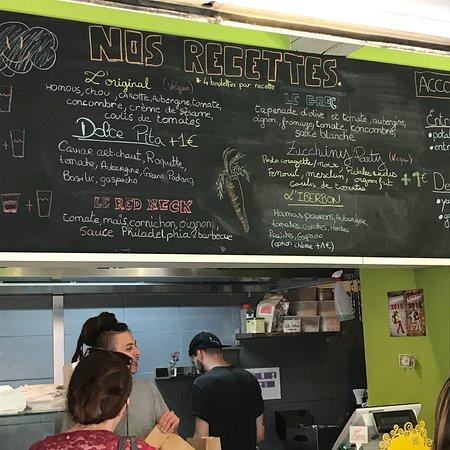 NOS RECETTES
* 4 boulettes par recette
L'original (Vegan)
Houmous, chou, carotte, Aubergine, tomate,
concombre, crème de sésame,
coulis de tomates
Dolce Pita +1€
Caviar artichaut, Roquette,
tomate, Aubergine, Grana Padano
Basilic, gaspacho
LE RED NECK
tomate, maïs, cornichon, oignon,
Sauce Philadelphia, barbecue
LE GREC
Tapenade d'olive et tomate, aubergine,
oignon, fromage, tomate, concombre,
sauce blanche
Zucchiny Party (Vegan)
Pesto courgette/noix
Fenouil, mesclun, oignon frit
coulis de tomates
+1€
L'IBERBON
Houmous poivrons, Aubergine,
tomates, carottes, Herbes
fraîches, Gaspacho
(option chèvre +1€)
ACCO
Entr
+pota
+entr
De